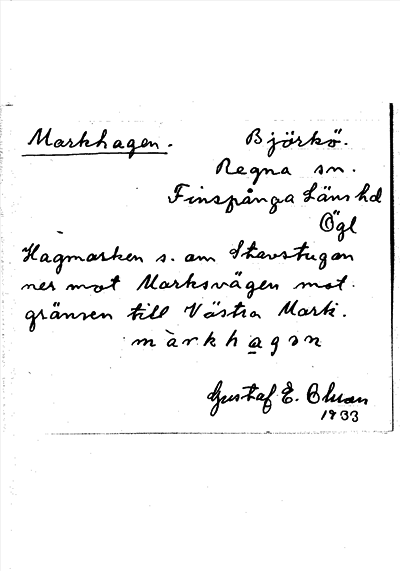 Markhagen. Björkö.
Regna sn.
Finspånga Länshd
Ögl
Hagmarken s. om Stavstugan
ner mot Marksvägen mot
gränsen till Västra Mark.
màrkhagən
Gustaf E.
1933